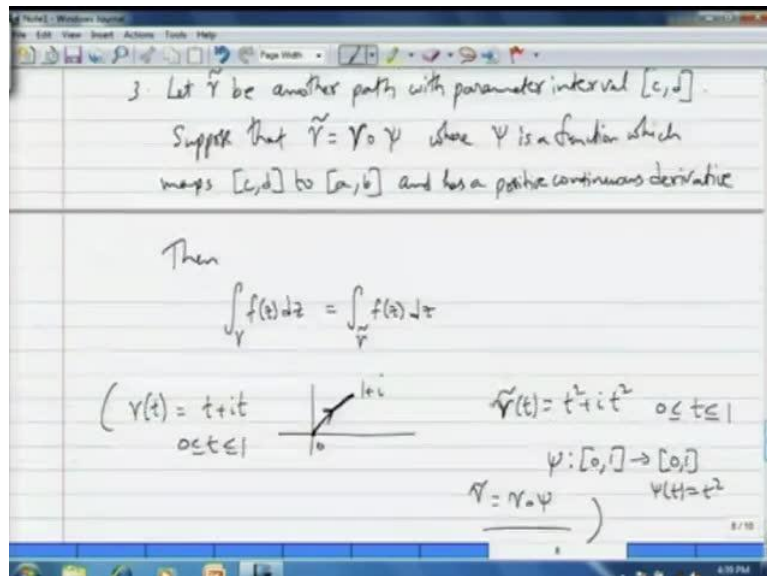 Note1 - Windows Journal
File Edit View Insert Actions Tools Help
Page Width
3. Let γ̃ be another path with parameter interval [c,d].
Suppose that γ̃ = γ∘ψ where ψ is a function which
maps [c,d] to [a,b] and has a positive continuous derivative
Then
∫_γ f(z) dz = ∫_γ̃ f(z) dz
( γ(t) = t+it
0≤t≤1
1+i
0
γ̃(t) = t²+it² 0≤t≤1
ψ:[0,1]→[0,1]
ψ(t)=t²
γ̃ = γ∘ψ )
8/10
8
4:39 PM